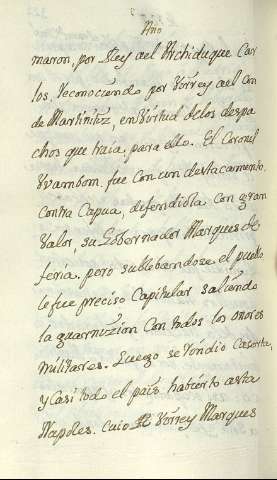 Año
maron, por Rey ael Archiduque Car
los, Reconociendo por Virrey al Con
de Martinitz, en Virtud delos despa
chos que traia, para ello. El Coronel
Vvambom, fue con un destacamento
contra Capua, defendiola con gran
Valor, su Gobernador Marques de
feria. pero sublebandoze, el pueblo
le fue preciso Capitular saliendo
la guarnizzion con todos los onores
militares. Luego se rindio Caserta,
y Casi todo el pais habierto asta
Napoles. Caio el Virrey Marques